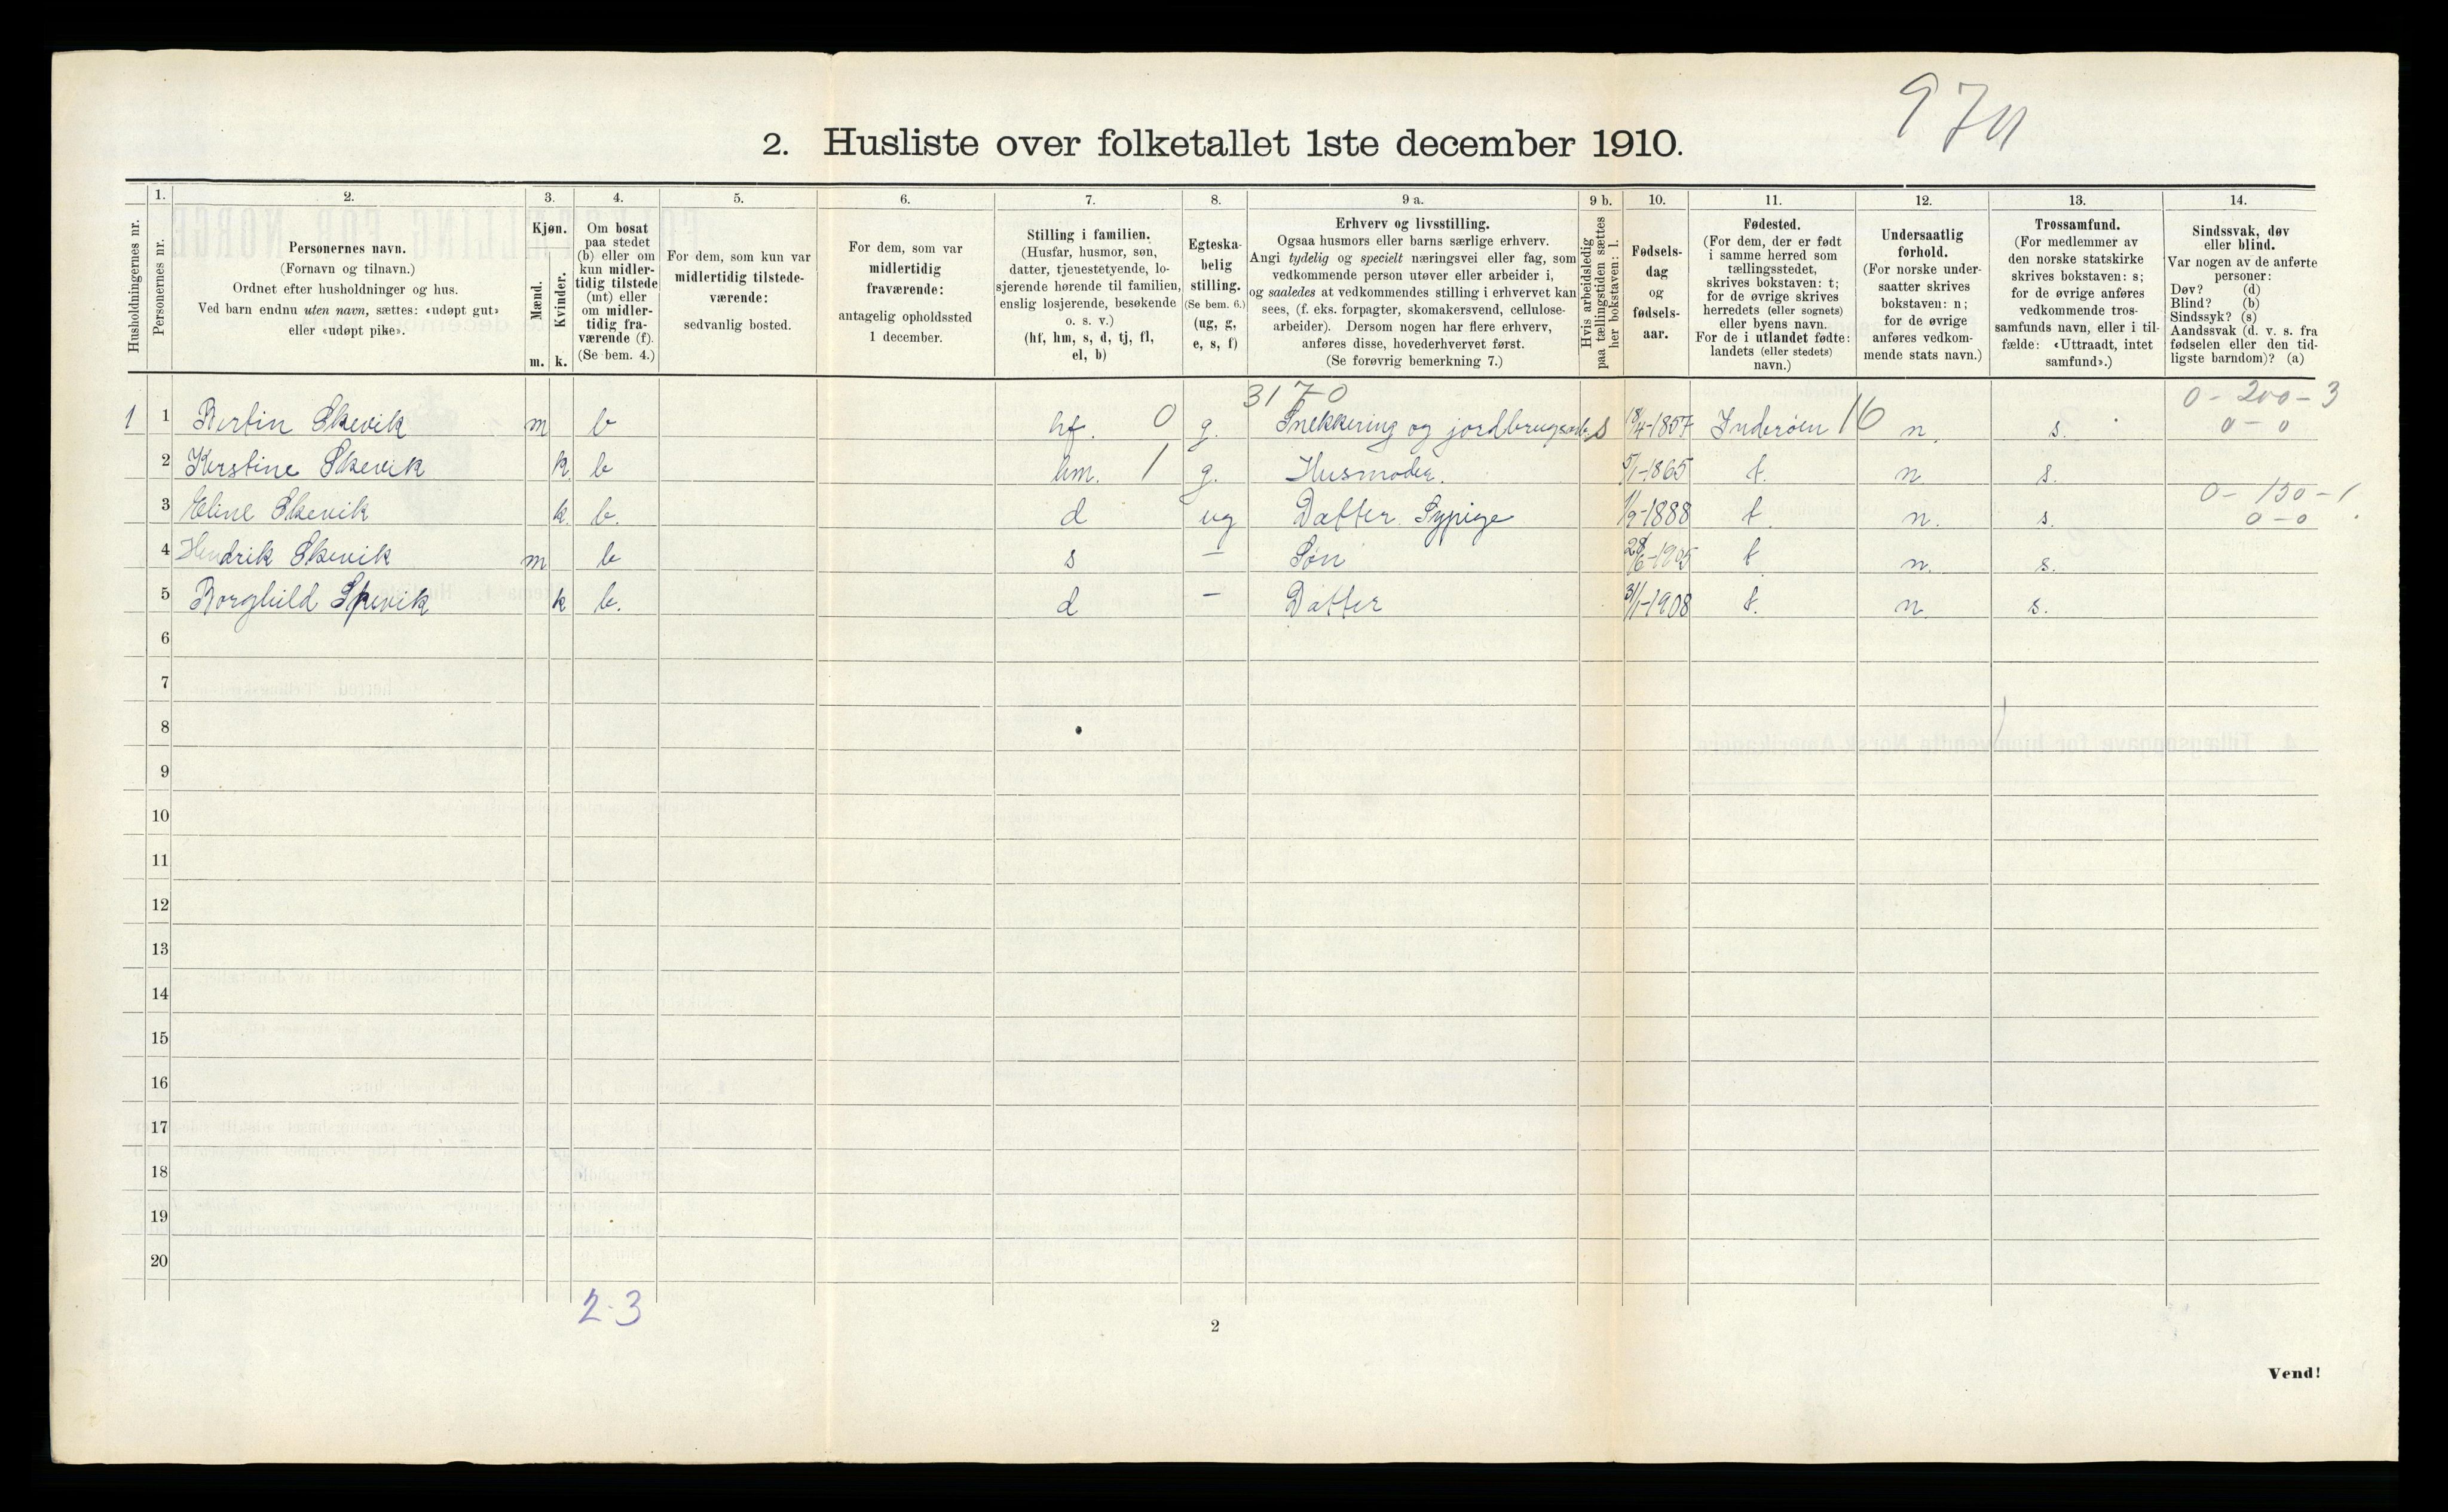 970
2. Husliste over folketallet 1ste december 1910.
Husholdningernes nr.
1.
Personernes nr.
2.
Personernes navn.
(Fornavn og tilnavn.)
Ordnet efter husholdninger og hus.
Ved barn endnu uten navn, sættes: «udøpt gut»
eller «udøpt pike».
3.
Kjøn.
Mænd.
m.
Kvinder.
k.
4.
Om bosat
paa stedet
(b) eller om
kun midler-
tidig tilstede
(mt) eller
om midler-
tidig fra-
værende (f).
(Se bem. 4.)
5.
For dem, som kun var
midlertidig tilstede-
værende:
sedvanlig bosted.
6.
For dem, som var
midlertidig
fraværende:
antagelig opholdssted
1 december.
7.
Stilling i familien.
(Husfar, husmor, søn,
datter, tjenestetyende, lo-
sjerende hørende til familien,
enslig losjerende, besøkende
o. s. v.)
(hf, hm, s, d, tj, fl,
el, b)
8.
Egteska-
belig
stilling.
(Se bem. 6.)
(ug, g,
e, s, f)
9 a.
Erhverv og livsstilling.
Ogsaa husmors eller barns særlige erhverv.
Angi tydelig og specielt næringsvei eller fag, som
vedkommende person utøver eller arbeider i,
og saaledes at vedkommendes stilling i erhvervet kan
sees, (f. eks. forpagter, skomakersvend, cellulose-
arbeider). Dersom nogen har flere erhverv,
anføres disse, hovederhvervet først.
(Se forøvrig bemerkning 7.)
9 b.
Hvis arbeidsledig
paa tællingstiden sættes
her bokstaven: l.
10.
Fødsels-
dag
og
fødsels-
aar.
11.
Fødested.
(For dem, der er født
i samme herred som
tællingsstedet,
skrives bokstaven: t;
for de øvrige skrives
herredets (eller sognets)
eller byens navn.
For de i utlandet fødte:
landets (eller stedets)
navn.)
12.
Undersaatlig
forhold.
(For norske under-
saatter skrives
bokstaven: n;
for de øvrige
anføres vedkom-
mende stats navn.)
13.
Trossamfund.
(For medlemmer av
den norske statskirke
skrives bokstaven: s;
for de øvrige anføres
vedkommende tros-
samfunds navn, eller i til-
fælde: «Uttraadt, intet
samfund».)
14.
Sindssvak, døv
eller blind.
Var nogen av de anførte
personer:
Døv? (d)
Blind? (b)
Sindssyk? (s)
Aandssvak (d. v. s. fra
fødselen eller den tid-
ligste barndom)? (a)
3170
0 - 200 - 3
1 1 Bertin Skevik m b hf. 0 g. Snekkering og jordbrugsarb. s 18/4-1857 Inderøen 16 n. s. 0 - 0
2 Kerstine Skevik k. b hm. 1 g. Husmoder. 5/1-1865 t. n. s.
0 - 150 - 1
3 Eline Skevik k. b. d ug Datter Sypige 1/9-1888 t. n. s. 0 - 0
4 Hendrik Skevik m b s – Søn 28/6-1905 t n. s.
5 Borghild Skevik k b. d – Datter 31/1-1908 t. n. s.
6
7
8
9
10
11
12
13
14
15
16
17
18
19
20
2-3
2
Vend!